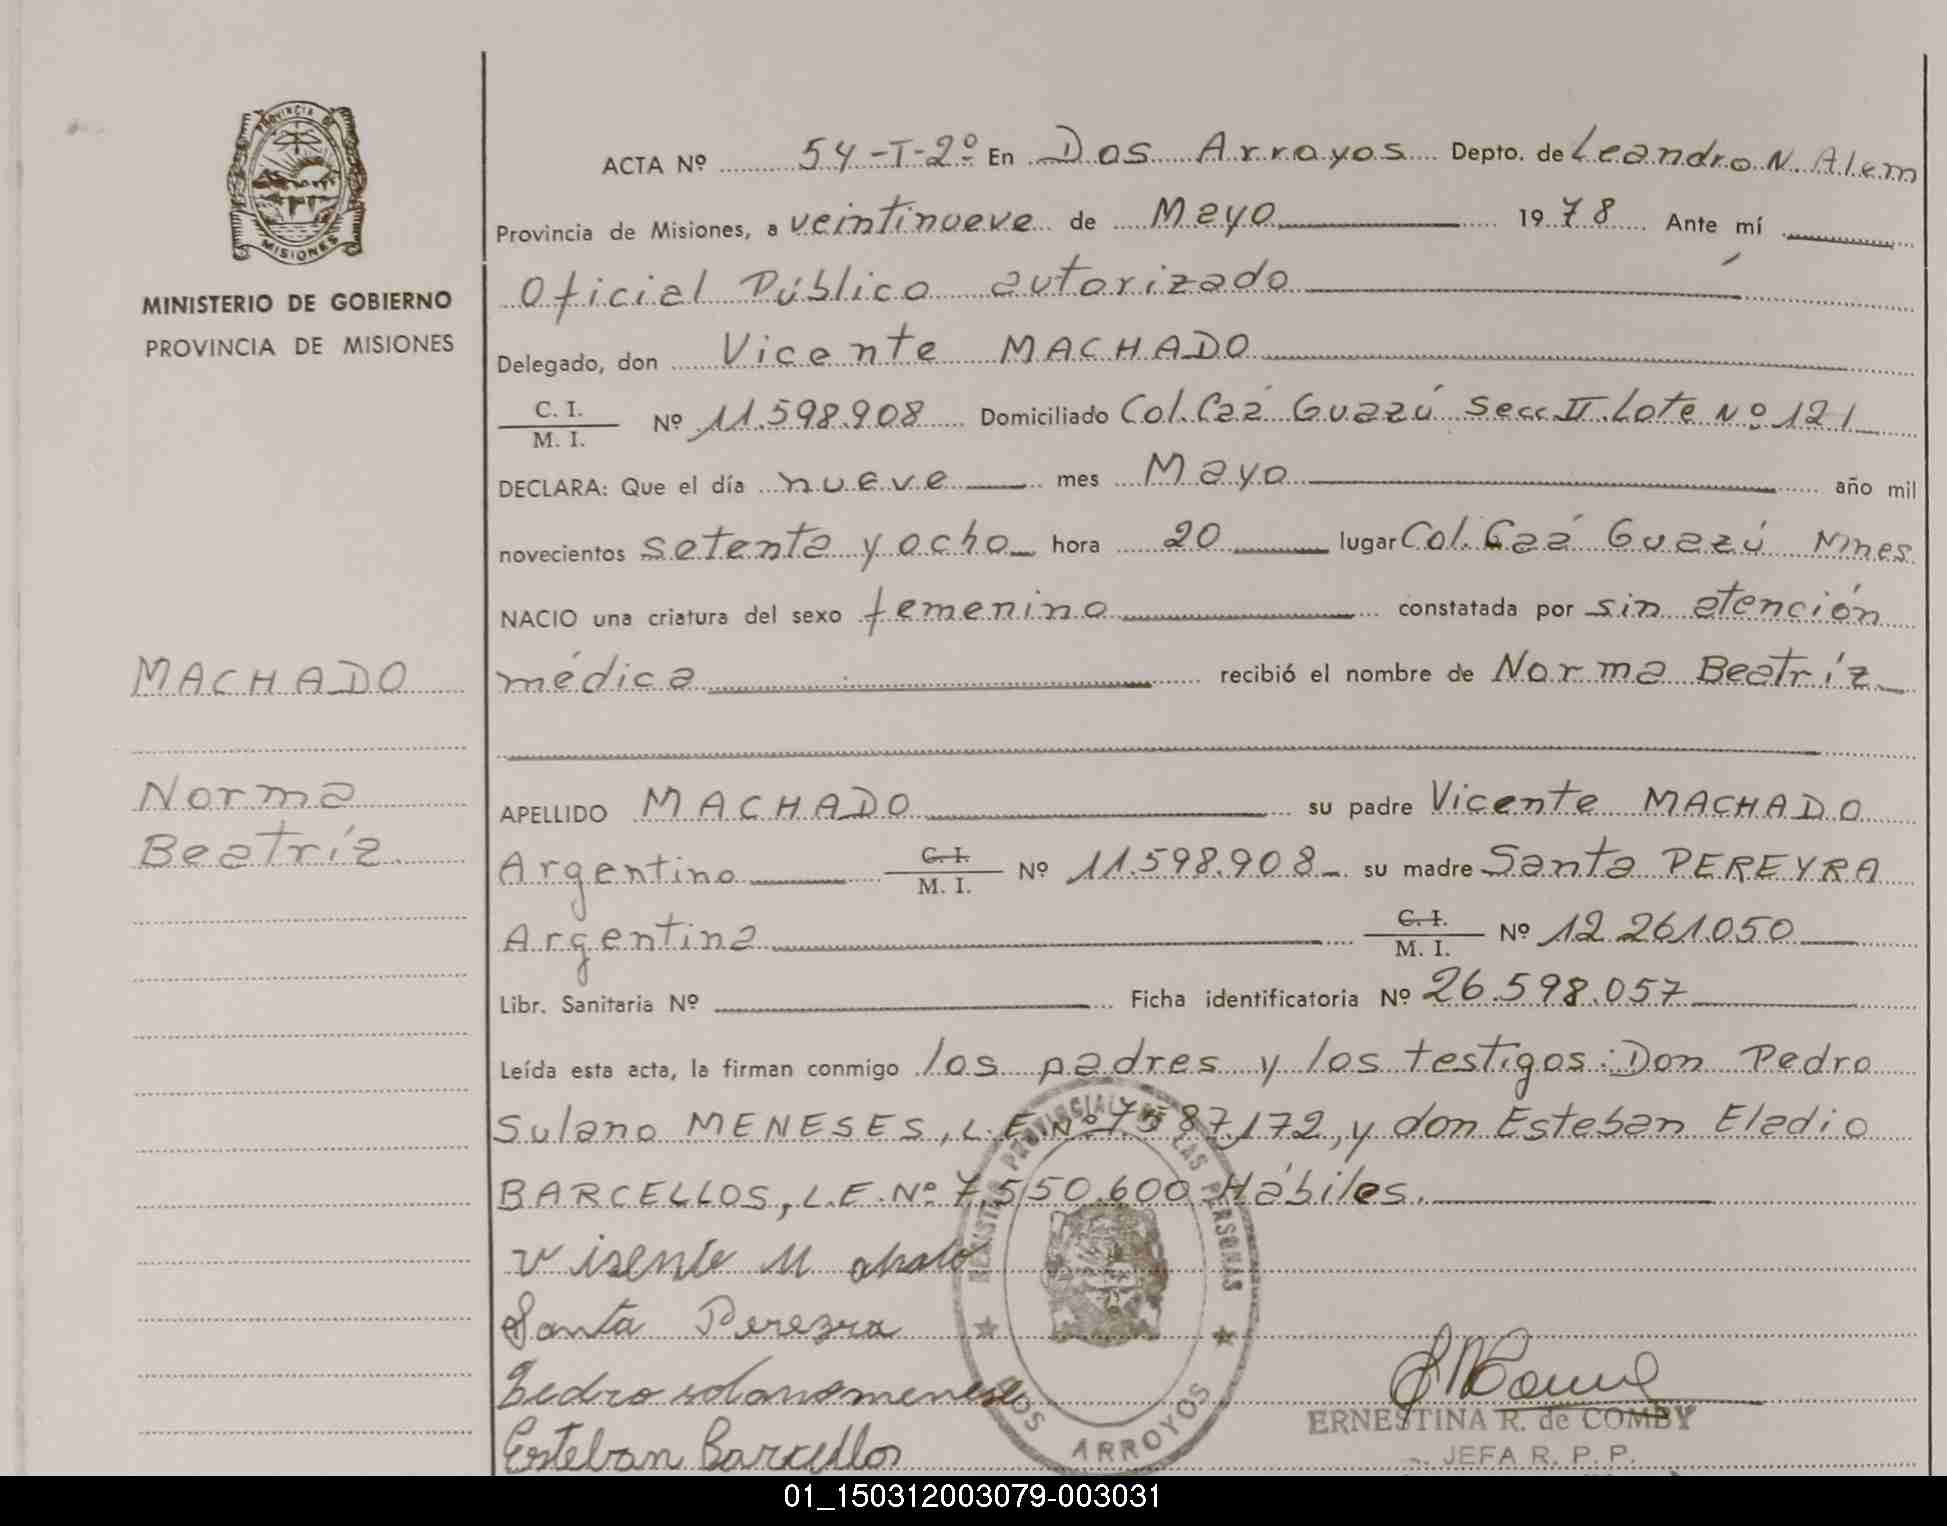 PROVINCIA DE
MISIONES
MINISTERIO DE GOBIERNO
PROVINCIA DE MISIONES
ACTA Nº 54-T-2º En Dos Arroyos Depto. de Leandro N. Alem
Provincia de Misiones, a veintinueve de Mayo 1978 Ante mí
Oficial Público autorizado
Delegado, don Vicente MACHADO
C. I.
M. I. Nº 11.598.908 Domiciliado Col. Caá Guazú Secc. II. Lote Nº 121
DECLARA: Que el día nueve mes Mayo año mil
novecientos setenta y ocho hora 20 lugar Col. Caá Guazú Mnes.
NACIO una criatura del sexo femenino constatada por sin atención
médica recibió el nombre de Norma Beatríz
MACHADO
Norma
Beatríz
APELLIDO MACHADO su padre Vicente MACHADO
Argentino C. I.
M. I. Nº 11.598.908 su madre Santa PEREYRA
Argentina C. I.
M. I. Nº 12.261.050
Libr. Sanitaria Nº Ficha identificatoria Nº 26.598.057
Leída esta acta, la firman conmigo los padres y los testigos: Don Pedro
Sulano MENESES, L.E. Nº 7587.172, y don Esteban Eladio
BARCELLOS, L.E. Nº 7.550.600 Hábiles.
Visente Machado
Santa Perezra
Pedro solano menese
Esteban Barcellos
REGISTRO PROVINCIAL DE LAS PERSONAS
DOS ARROYOS
ERNESTINA R. de COMBY
JEFA R. P. P.
01_150312003079-003031